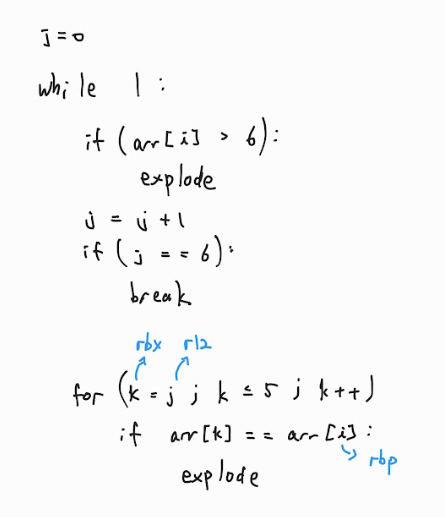 j = 0
while 1 :
if ( arr[i] > 6 ) :
explode
j = j + 1
if ( j == 6 ) :
break
rbx r12
for ( k = j ; k ≤ 5 ; k++ )
if arr[k] == arr[i] :
rbp
explode